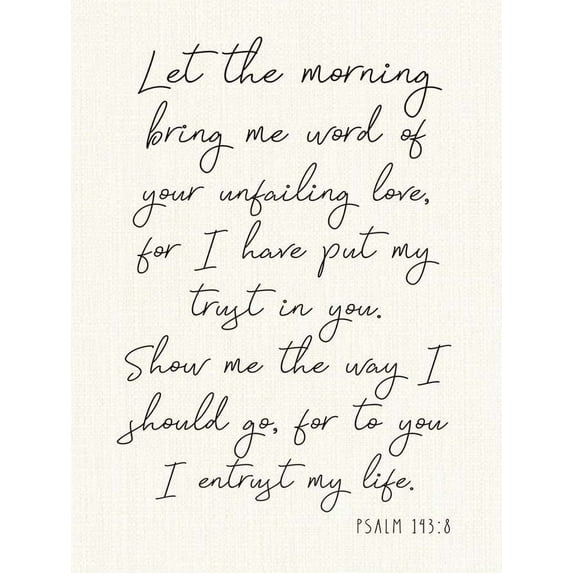 Let the morning
bring me word of
your unfailing love,
for I have put my
trust in you.
Show me the way I
should go, for to you
I entrust my life.
PSALM 143:8